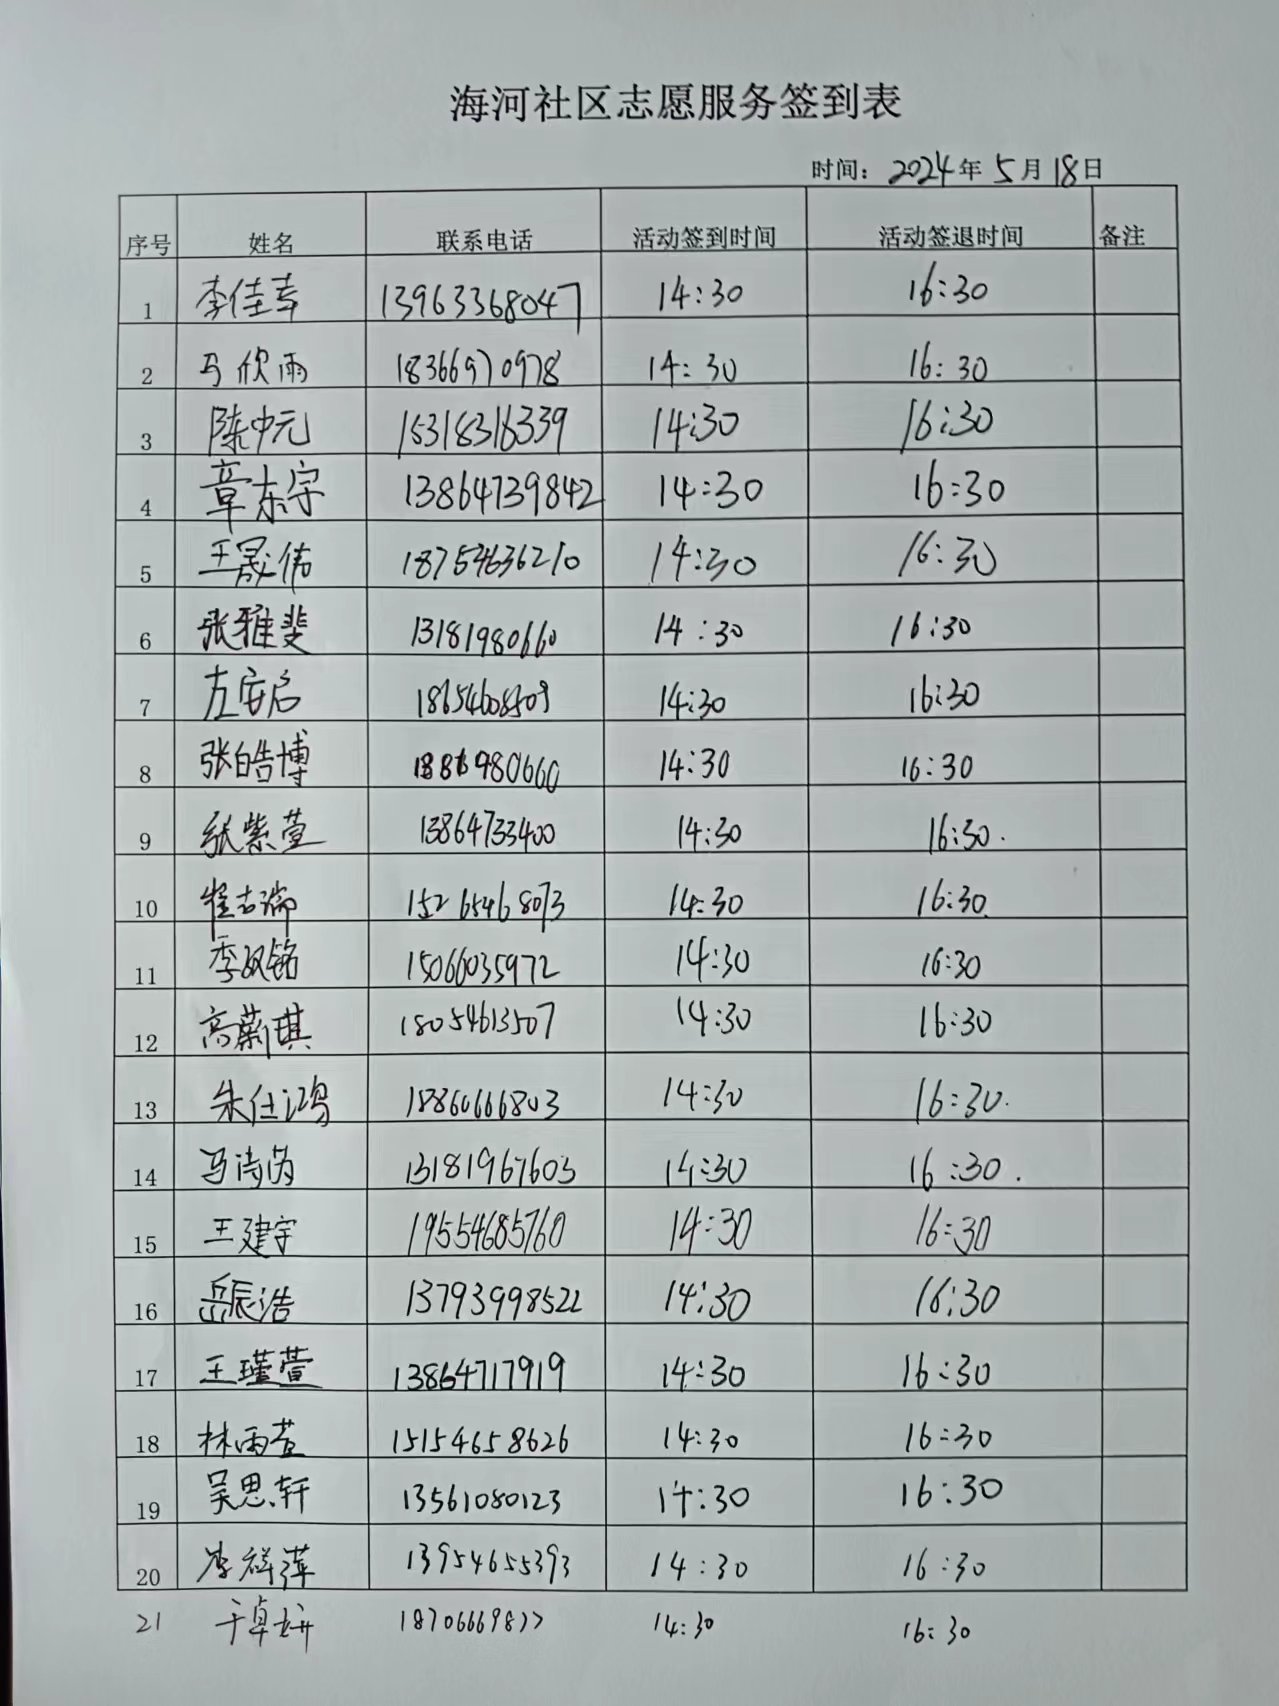 海河社区志愿服务签到表
时间：2024年5月18日
序号 姓名 联系电话 活动签到时间 活动签退时间 备注
1 李佳幸 13963368047 14:30 16:30
2 马欣雨 18366970978 14:30 16:30
3 陈中元 15318318339 14:30 16:30
4 章东宇 13864739842 14:30 16:30
5 王晟伟 18754636210 14:30 16:30
6 张雅斐 13181980660 14:30 16:30
7 左安启 14:30 16:30
8 张皓博 14:30 16:30
9 张紫萱 13864733400 14:30 16:30.
10 崔志瑞 15265468073 14:30 16:30.
11 李双铭 15066035972 14:30 16:30
12 高蔚琪 18054613507 14:30 16:30
13 朱仕鸿 18860666803 14:30 16:30.
14 马诗芮 13181967603 14:30 16:30.
15 王建宇 19554685760 14:30 16:30
16 岳辰浩 13793998522 14:30 16:30
17 王瑾萱 13864717919 14:30 16:30
18 林雨萱 15154658626 14:30 16:30
19 吴思轩 13561080123 14:30 16:30
20 李祥萍 13954655393 14:30 16:30
21 于卓妍 18706669877 14:30 16:30